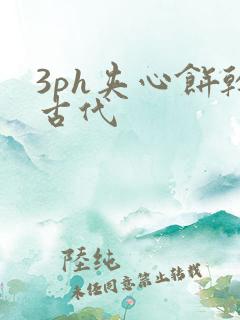 3ph夹心餅乾
古代
陸純
未经同意禁止转载